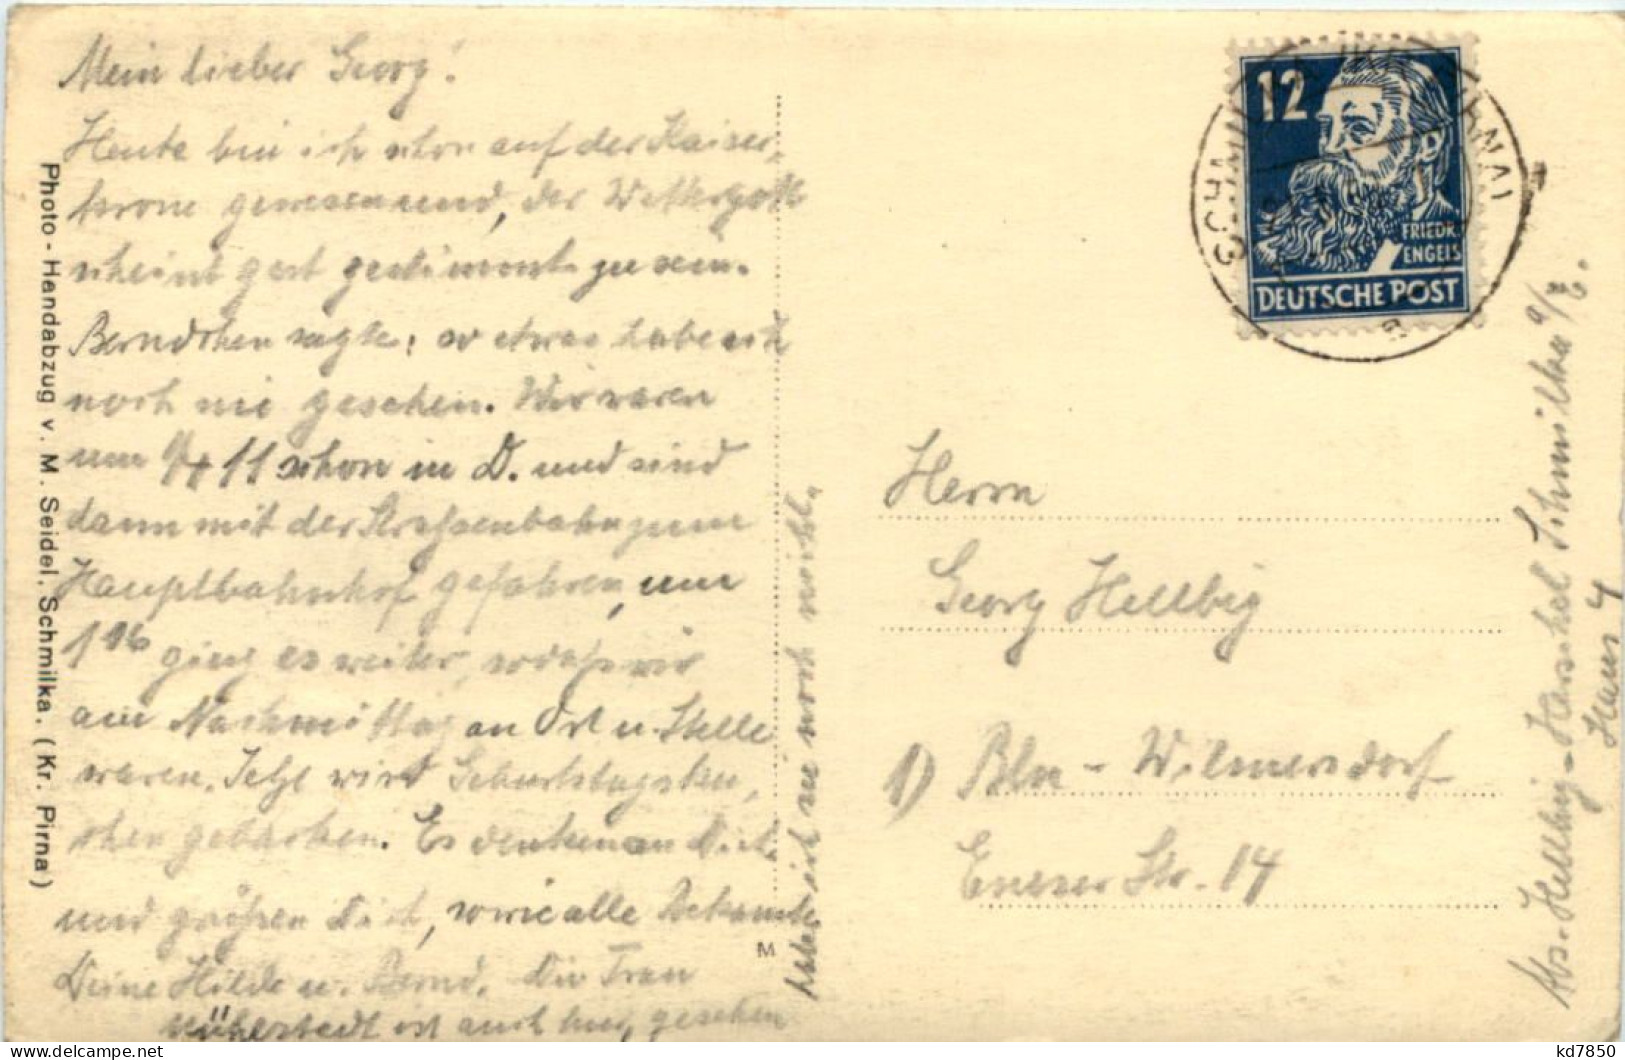 Mein lieber Georg!
Heute bin ich schon auf der Kaiser-
krone gewesen und, der Wettergott
scheint gut gestimmt zu sein.
Berndchen sagte: so etwas habe ich
noch nie gesehen. Wir waren
um 1/4 11 schon in D. und sind
dann mit der Strassenbahn zum
Hauptbahnhof gefahren, um
1 16 ging es weiter, sodass wir
am Nachmittag an Ort u. Stelle
waren. Jetzt wird Geburtstagsku-
chen gebacken. Es denken an Dich
und grüßen Dich, sowie alle Bekannte
Deine Hilde u. Bernd. Die Frau
ist auch hier, gesehen
habe ich sie noch nicht.
Photo-Handabzug v. M. Seidel, Schmilka. (Kr. Pirna)
M
12
FRIEDR.
ENGELS
DEUTSCHE POST
SCHMILKA PIRNA
a
Herrn
Georg Hellbig
1) Bln-Wilmersdorf
Str. 14
Abs. Hellbig- Schmilka
Haus 4
kd7850